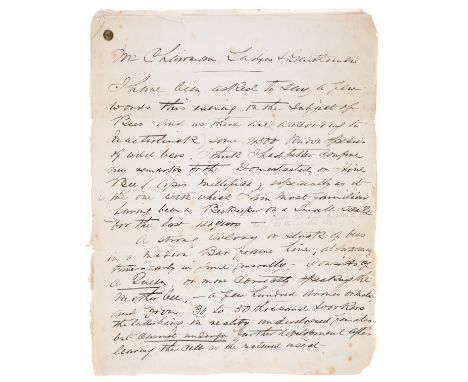 Mr Chairman Ladies & Gentlemen
I have been asked to say a few
words this evening on the subject of
Bees and as there are according to
Maeterlinck some 4500 known species
of wild bees, I think I had better confine
my remarks to the Domesticated or Hive
Bee (apis mellifica) especially as it
the one with which I am most familiar
having been a Beekeeper on a Small Scale
for the last
A strong Colony or Stock of bees
in a modern Bar frame hive, at swarming
time - early in June generally - consists of
a Queen, or more correctly speaking the
Mother bee, - a few hundred drones or males
and from 30 to 50 thousand workers
the latter being in reality undeveloped females
but cannot undergo further development after
leaving the cell as the matured insect -